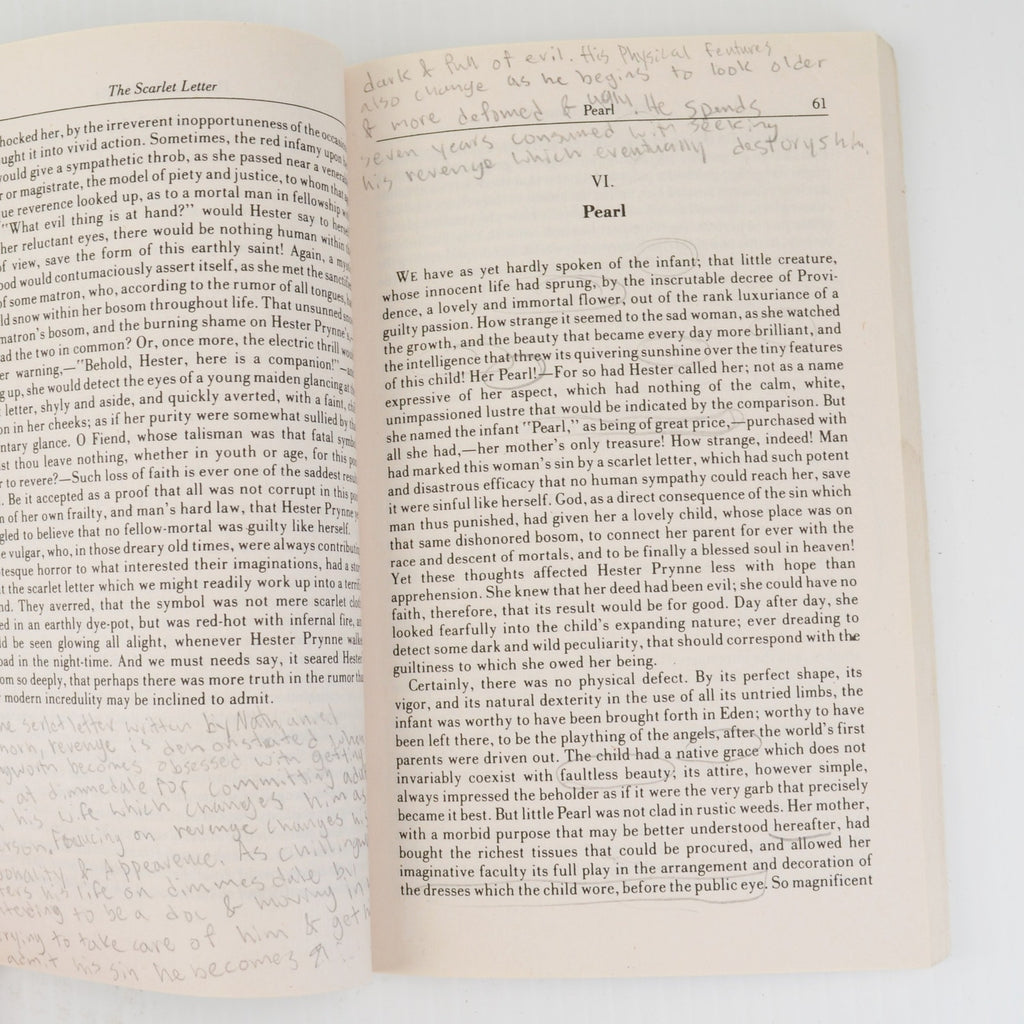 The Scarlet Letter
hocked her, by the irreverent inopportuneness of the
ught it into vivid action. Sometimes, the red infamy upon
ould give a sympathetic throb, as she passed near a
r or magistrate, the model of piety and justice, to whom that
ue reverence looked up, as to a mortal man in fellowship
"What evil thing is at hand?" would Hester say to
her reluctant eyes, there would be nothing human within
f view, save the form of this earthly saint! Again, a
ood would contumaciously assert itself, as she met the
f some matron, who, according to the rumor of all tongues,
ld snow within her bosom throughout life. That unsunned
matron's bosom, and the burning shame on Hester Prynne's,
ad the two in common? Or, once more, the electric thrill
er warning,—"Behold, Hester, here is a companion!"—
g up, she would detect the eyes of a young maiden glancing at
letter, shyly and aside, and quickly averted, with a faint,
on in her cheeks; as if her purity were somewhat sullied by
ntary glance. O Fiend, whose talisman was that fatal
st thou leave nothing, whether in youth or age, for this
r to revere?—Such loss of faith is ever one of the saddest
. Be it accepted as a proof that all was not corrupt in this
n of her own frailty, and man's hard law, that Hester Prynne
gled to believe that no fellow-mortal was guilty like herself.
e vulgar, who, in those dreary old times, were always
tesque horror to what interested their imaginations, had a
t the scarlet letter which we might readily work up into a
nd. They averred, that the symbol was not mere scarlet
ed in an earthly dye-pot, but was red-hot with infernal fire,
ld be seen glowing all alight, whenever Hester Prynne
oad in the night-time. And we must needs say, it seared Hester
om so deeply, that perhaps there was more truth in the rumor
modern incredulity may be inclined to admit.
letter written by
revenge is demonstrated when
becomes obsessed with getting
at dimmedale for committing
his wife which changes him as
Foucing on revenge changes his
& Appearence. As
his life on dimmesdale
to be a doc & moving
trying to take care of him & get
admit his sin he becomes
dark & full of evil. His Physical Features
also change as he begins to look older
& more defomed & ugly. He spends
Pearl 61
seven years consumed with seeking
his revenge which eventually destorys him.
VI.
Pearl
WE have as yet hardly spoken of the infant; that little creature,
whose innocent life had sprung, by the inscrutable decree of Provi-
dence, a lovely and immortal flower, out of the rank luxuriance of a
guilty passion. How strange it seemed to the sad woman, as she watched
the growth, and the beauty that became every day more brilliant, and
the intelligence that threw its quivering sunshine over the tiny features
of this child! Her Pearl!—For so had Hester called her; not as a name
expressive of her aspect, which had nothing of the calm, white,
unimpassioned lustre that would be indicated by the comparison. But
she named the infant "Pearl," as being of great price,—purchased with
all she had,—her mother's only treasure! How strange, indeed! Man
had marked this woman's sin by a scarlet letter, which had such potent
and disastrous efficacy that no human sympathy could reach her, save
it were sinful like herself. God, as a direct consequence of the sin which
man thus punished, had given her a lovely child, whose place was on
that same dishonored bosom, to connect her parent for ever with the
race and descent of mortals, and to be finally a blessed soul in heaven!
Yet these thoughts affected Hester Prynne less with hope than
apprehension. She knew that her deed had been evil; she could have no
faith, therefore, that its result would be for good. Day after day, she
looked fearfully into the child's expanding nature; ever dreading to
detect some dark and wild peculiarity, that should correspond with the
guiltiness to which she owed her being.
Certainly, there was no physical defect. By its perfect shape, its
vigor, and its natural dexterity in the use of all its untried limbs, the
infant was worthy to have been brought forth in Eden; worthy to have
been left there, to be the plaything of the angels, after the world's first
parents were driven out. The child had a native grace which does not
invariably coexist with faultless beauty; its attire, however simple,
always impressed the beholder as if it were the very garb that precisely
became it best. But little Pearl was not clad in rustic weeds. Her mother,
with a morbid purpose that may be better understood hereafter, had
bought the richest tissues that could be procured, and allowed her
imaginative faculty its full play in the arrangement and decoration of
the dresses which the child wore, before the public eye. So magnificent